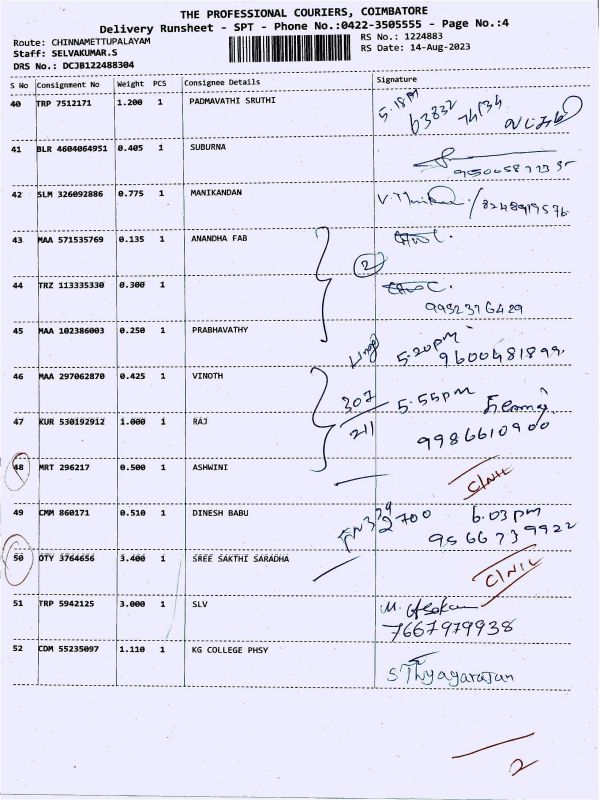 THE PROFESSIONAL COURIERS, COIMBATORE
Delivery Runsheet - SPT - Phone No.:0422-3505555 - Page No.:4
Route: CHINNAMETTUPALAYAM
Staff: SELVAKUMAR.S
DRS No.: DCJB122488304
RS No.: 1224883
RS Date: 14-Aug-2023
S No Consignment No Weight PCS Consignee Details Signature
40 TRP 7512171 1.200 1 PADMAVATHI SRUTHI 5.18 PM 63832 74134
41 BLR 4604064951 0.405 1 SUBURNA
42 SLM 326092886 0.775 1 MANIKANDAN 8248919576
43 MAA 571535769 0.135 1 ANANDHA FAB
2
44 TRZ 113335330 0.300 1
9952376429
45 MAA 102386003 0.250 1 PRABHAVATHY 5.20pm 9600481899.
46 MAA 297062870 0.425 1 VINOTH 307 5.55pm
47 KUR 530192912 1.000 1 RAJ 211 9986610900
48 MRT 296217 0.500 1 ASHWINI C/NIL
49 CMM 860171 0.510 1 DINESH BABU 2700 6.03pm
95667 39922
50 OTY 3764656 3.400 1 SREE SAKTHI SARADHA C/NIL
51 TRP 5942125 3.000 1 SLV M. Asokan
7667979938
52 CDM 55235097 1.110 1 KG COLLEGE PHSY
S Thyagarajan
2